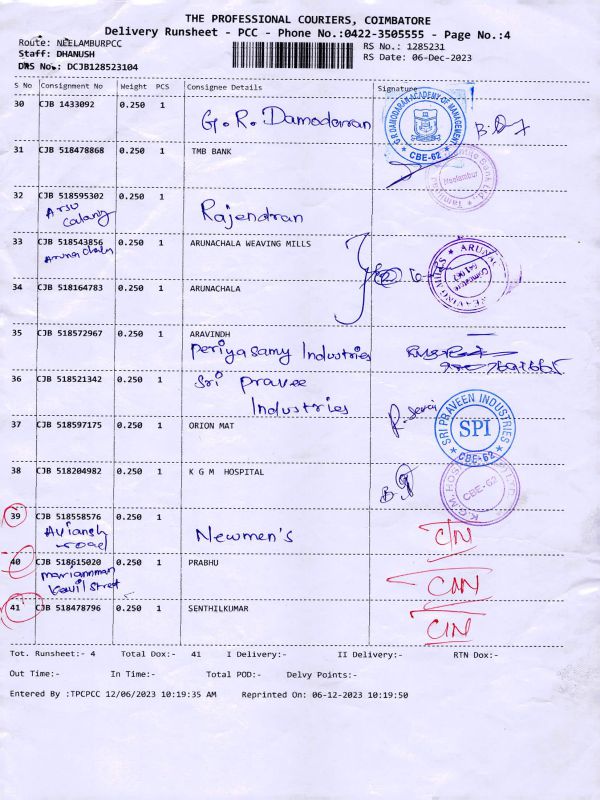 THE PROFESSIONAL COURIERS, COIMBATORE
Delivery Runsheet - PCC - Phone No.:0422-3505555 - Page No.:4
Route: NEELAMBURPCC RS No.: 1285231
Staff: DHANUSH RS Date: 06-Dec-2023
DRS No.: DCJB128523104
S No Consignment No Weight PCS Consignee Details Signature
30 CJB 1433092 0.250 1 G.R. Damodaran
G.R DAMODARAN ACADEMY OF MANAGEMENT
* CBE-62 *
31 CJB 518478868 0.250 1 TMB BANK
Neelambur
32 CJB 518595302 0.250 1 Rajendran
33 CJB 518543856 0.250 1 ARUNACHALA WEAVING MILLS
34 CJB 518164783 0.250 1 ARUNACHALA
35 CJB 518572967 0.250 1 ARAVINDH
Periyasamy Industries
36 CJB 518521342 0.250 1 Sri Pravee
Industries
37 CJB 518597175 0.250 1 ORION MAT
SRI PRAVEEN INDUSTRIES
SPI
* CBE-62 *
38 CJB 518204982 0.250 1 K G M HOSPITAL
CBE-62
39 CJB 518558576 0.250 1 Newmen's C/N
road
40 CJB 518615020 0.250 1 PRABHU
Mariamman
Kovil Street
41 CJB 518478796 0.250 1 SENTHILKUMAR C/N
Tot. Runsheet:- 4 Total Dox:- 41 I Delivery:- II Delivery:- RTN Dox:-
Out Time:- In Time:- Total POD:- Delvy Points:-
Entered By :TPCPCC 12/06/2023 10:19:35 AM Reprinted On: 06-12-2023 10:19:50